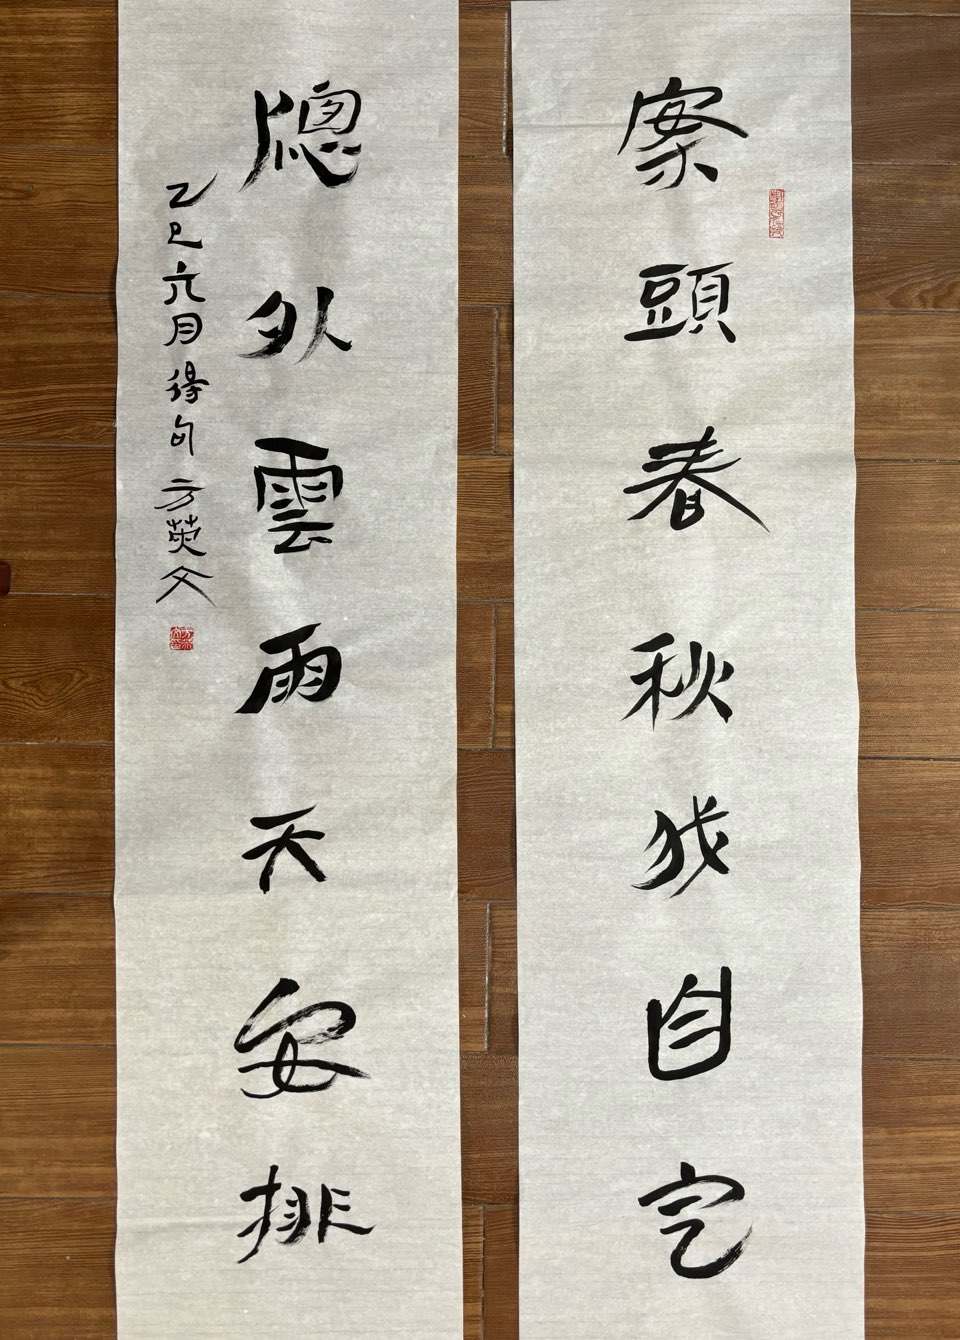 案頭春秋我自定
牕外雲雨天安排
乙巳六月得句 方英文